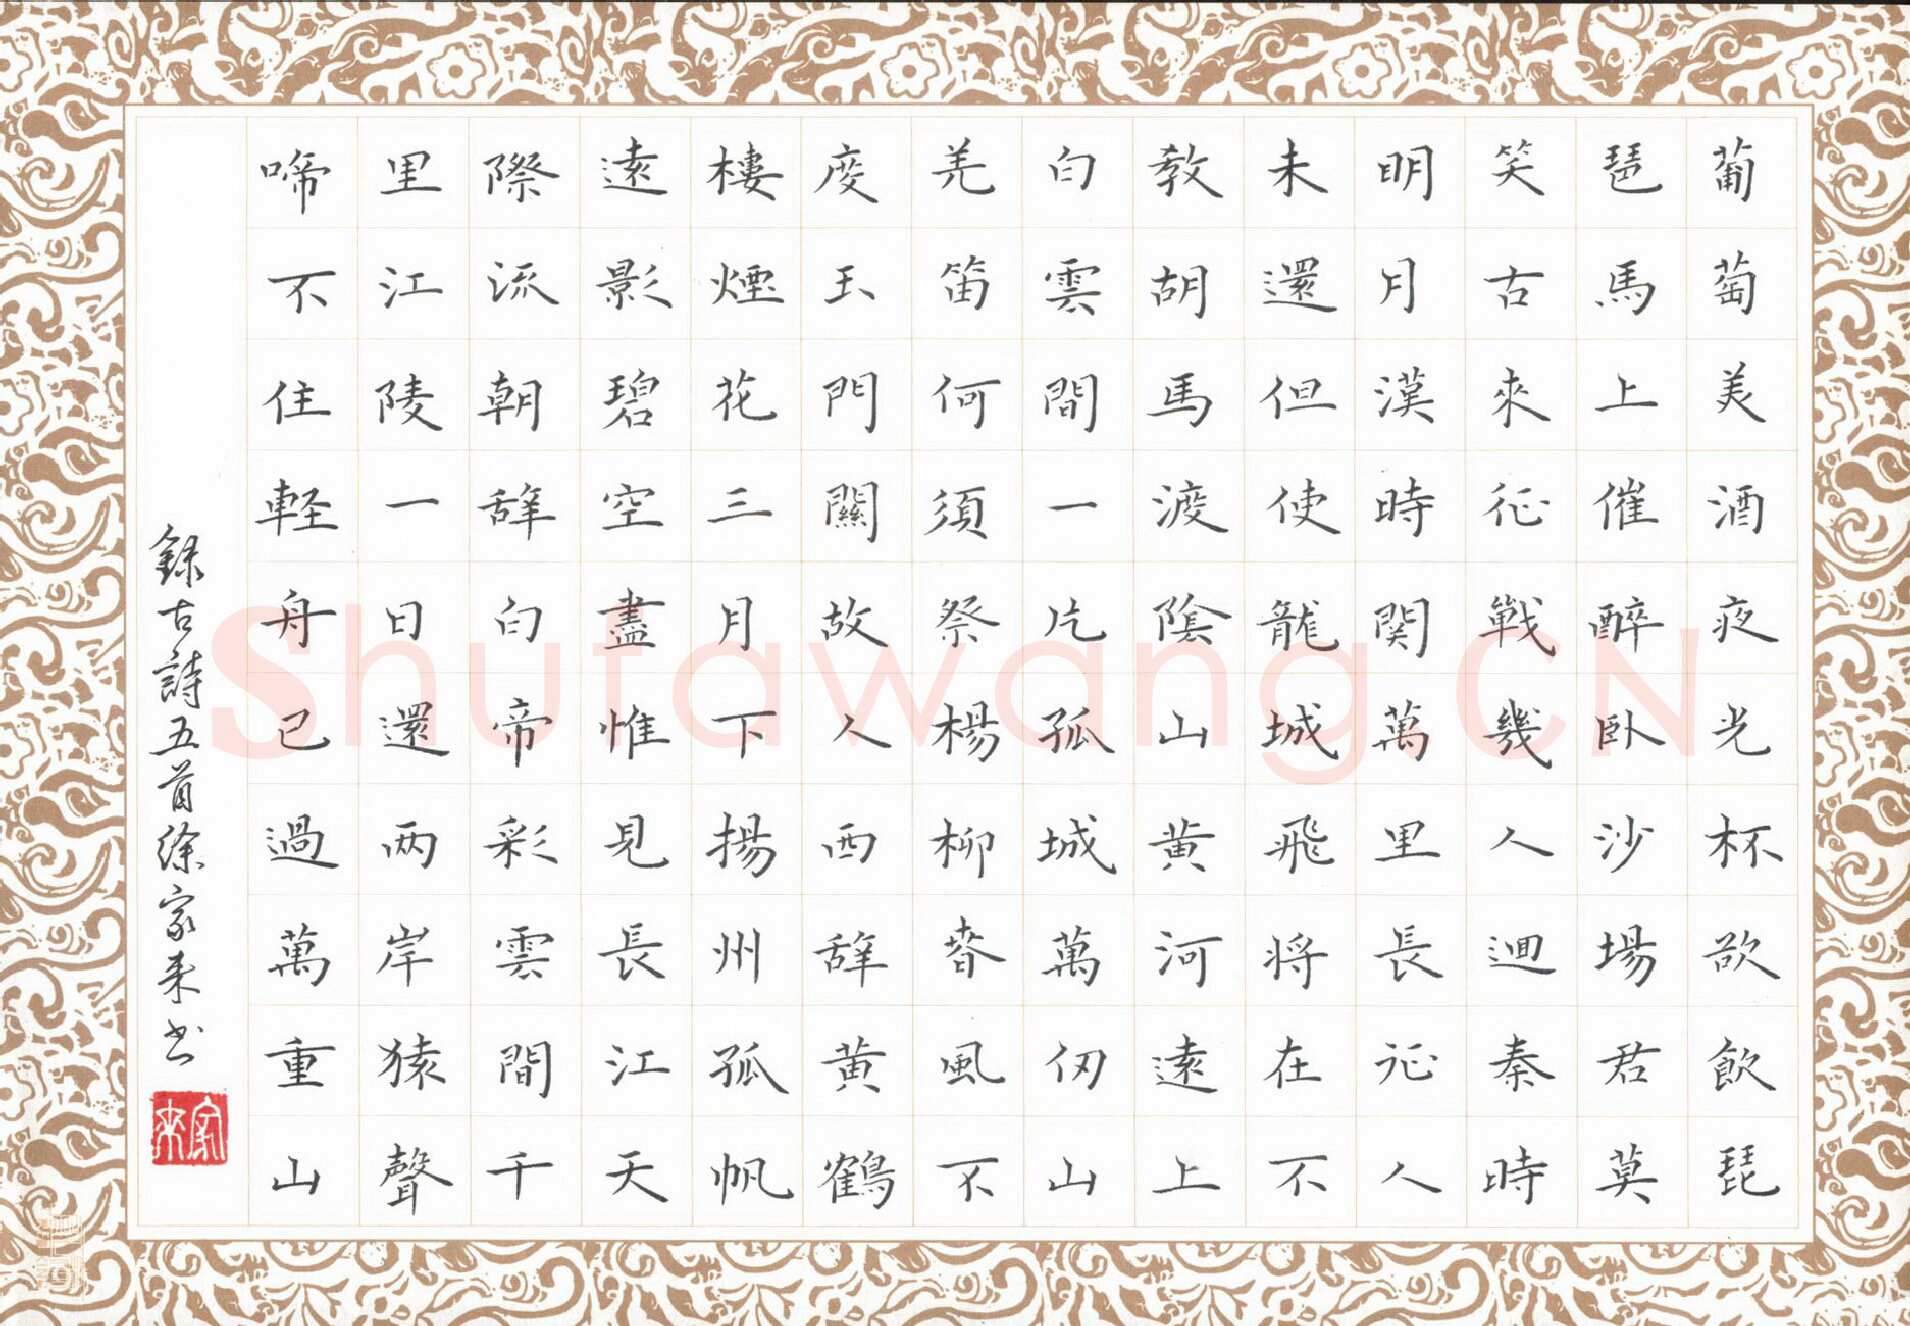 葡萄美酒夜光杯欲飲琵
琶馬上催醉臥沙場君莫
笑古來征戰幾人迴秦時
明月漢時関萬里長征人
未還但使龍城飛将在不
教胡馬渡陰山黄河遠上
白雲間一片孤城萬仞山
羌笛何須祭楊柳春風不
度玉門關故人西辞黄鶴
樓煙花三月下揚州孤帆
遠影碧空盡惟見長江天
際流朝辞白帝彩雲間千
里江陵一日還两岸猿聲
啼不住軽舟已過萬重山
録古詩五首徐家来书
家来
Shufawang.CN